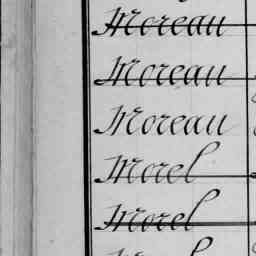 Moreau
Moreau
Moreau
Morel
Morel